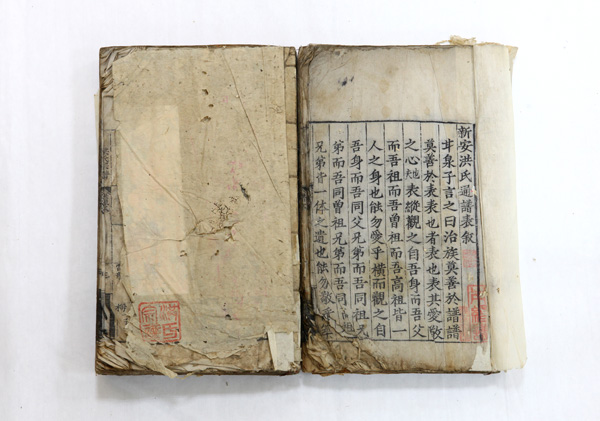 新安洪氏通譜表敘
泉子言之曰治族莫善於譜譜
莫善於表表也者表也表其愛敬
之心表縱觀之自吾身而吾父
而吾祖而吾曾祖而吾高祖皆一
人之身也能勿愛乎橫而觀之自
吾身而吾同父兄弟而吾同祖兄
弟而吾同曾祖兄弟而吾同祖
兄弟皆一体之遺也能勿敬